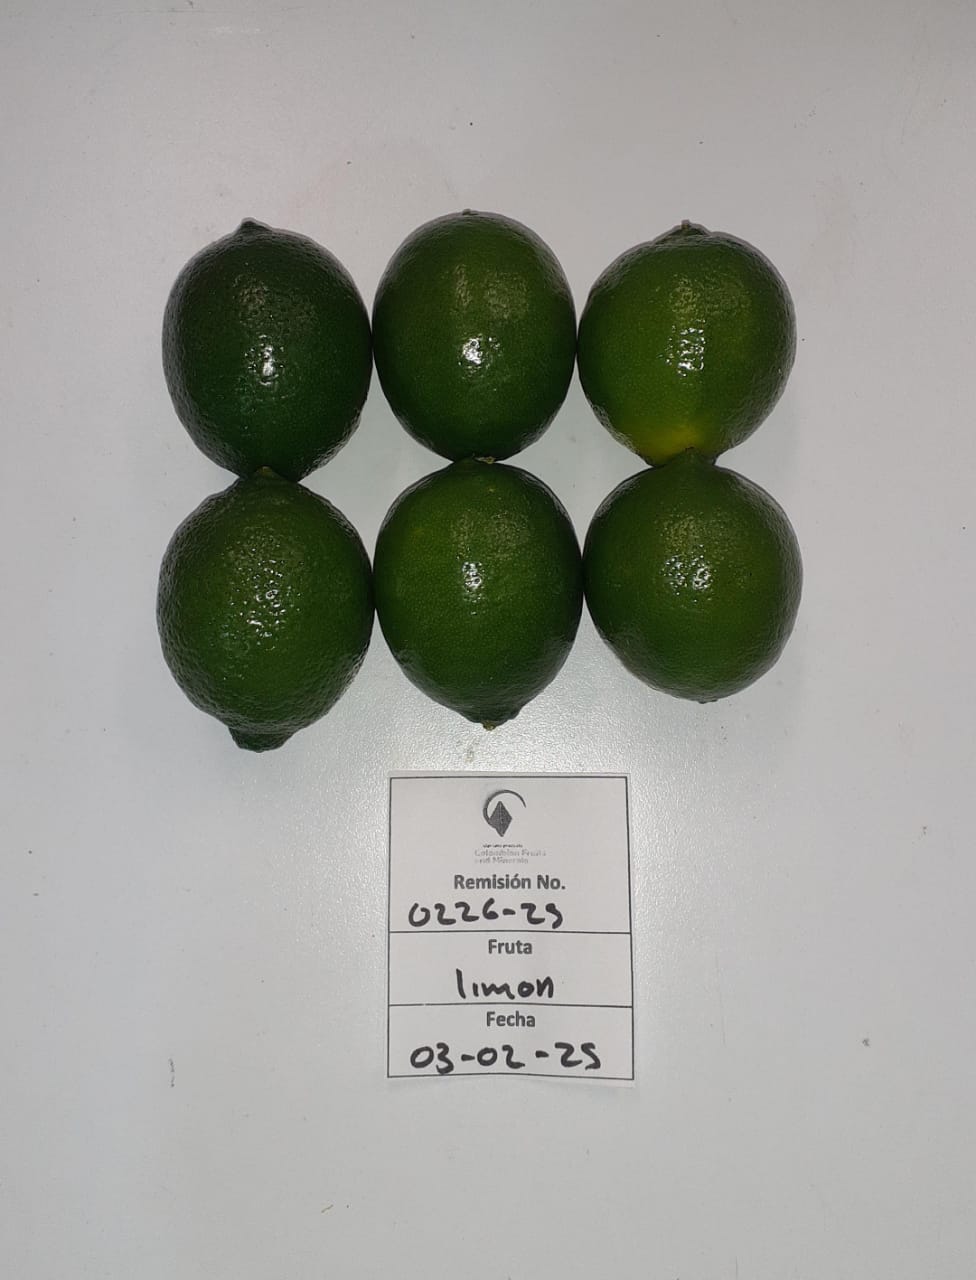 Colombian Fruits
and Minerals
Remisión No.
0226-25
Fruta
limon
Fecha
03-02-25